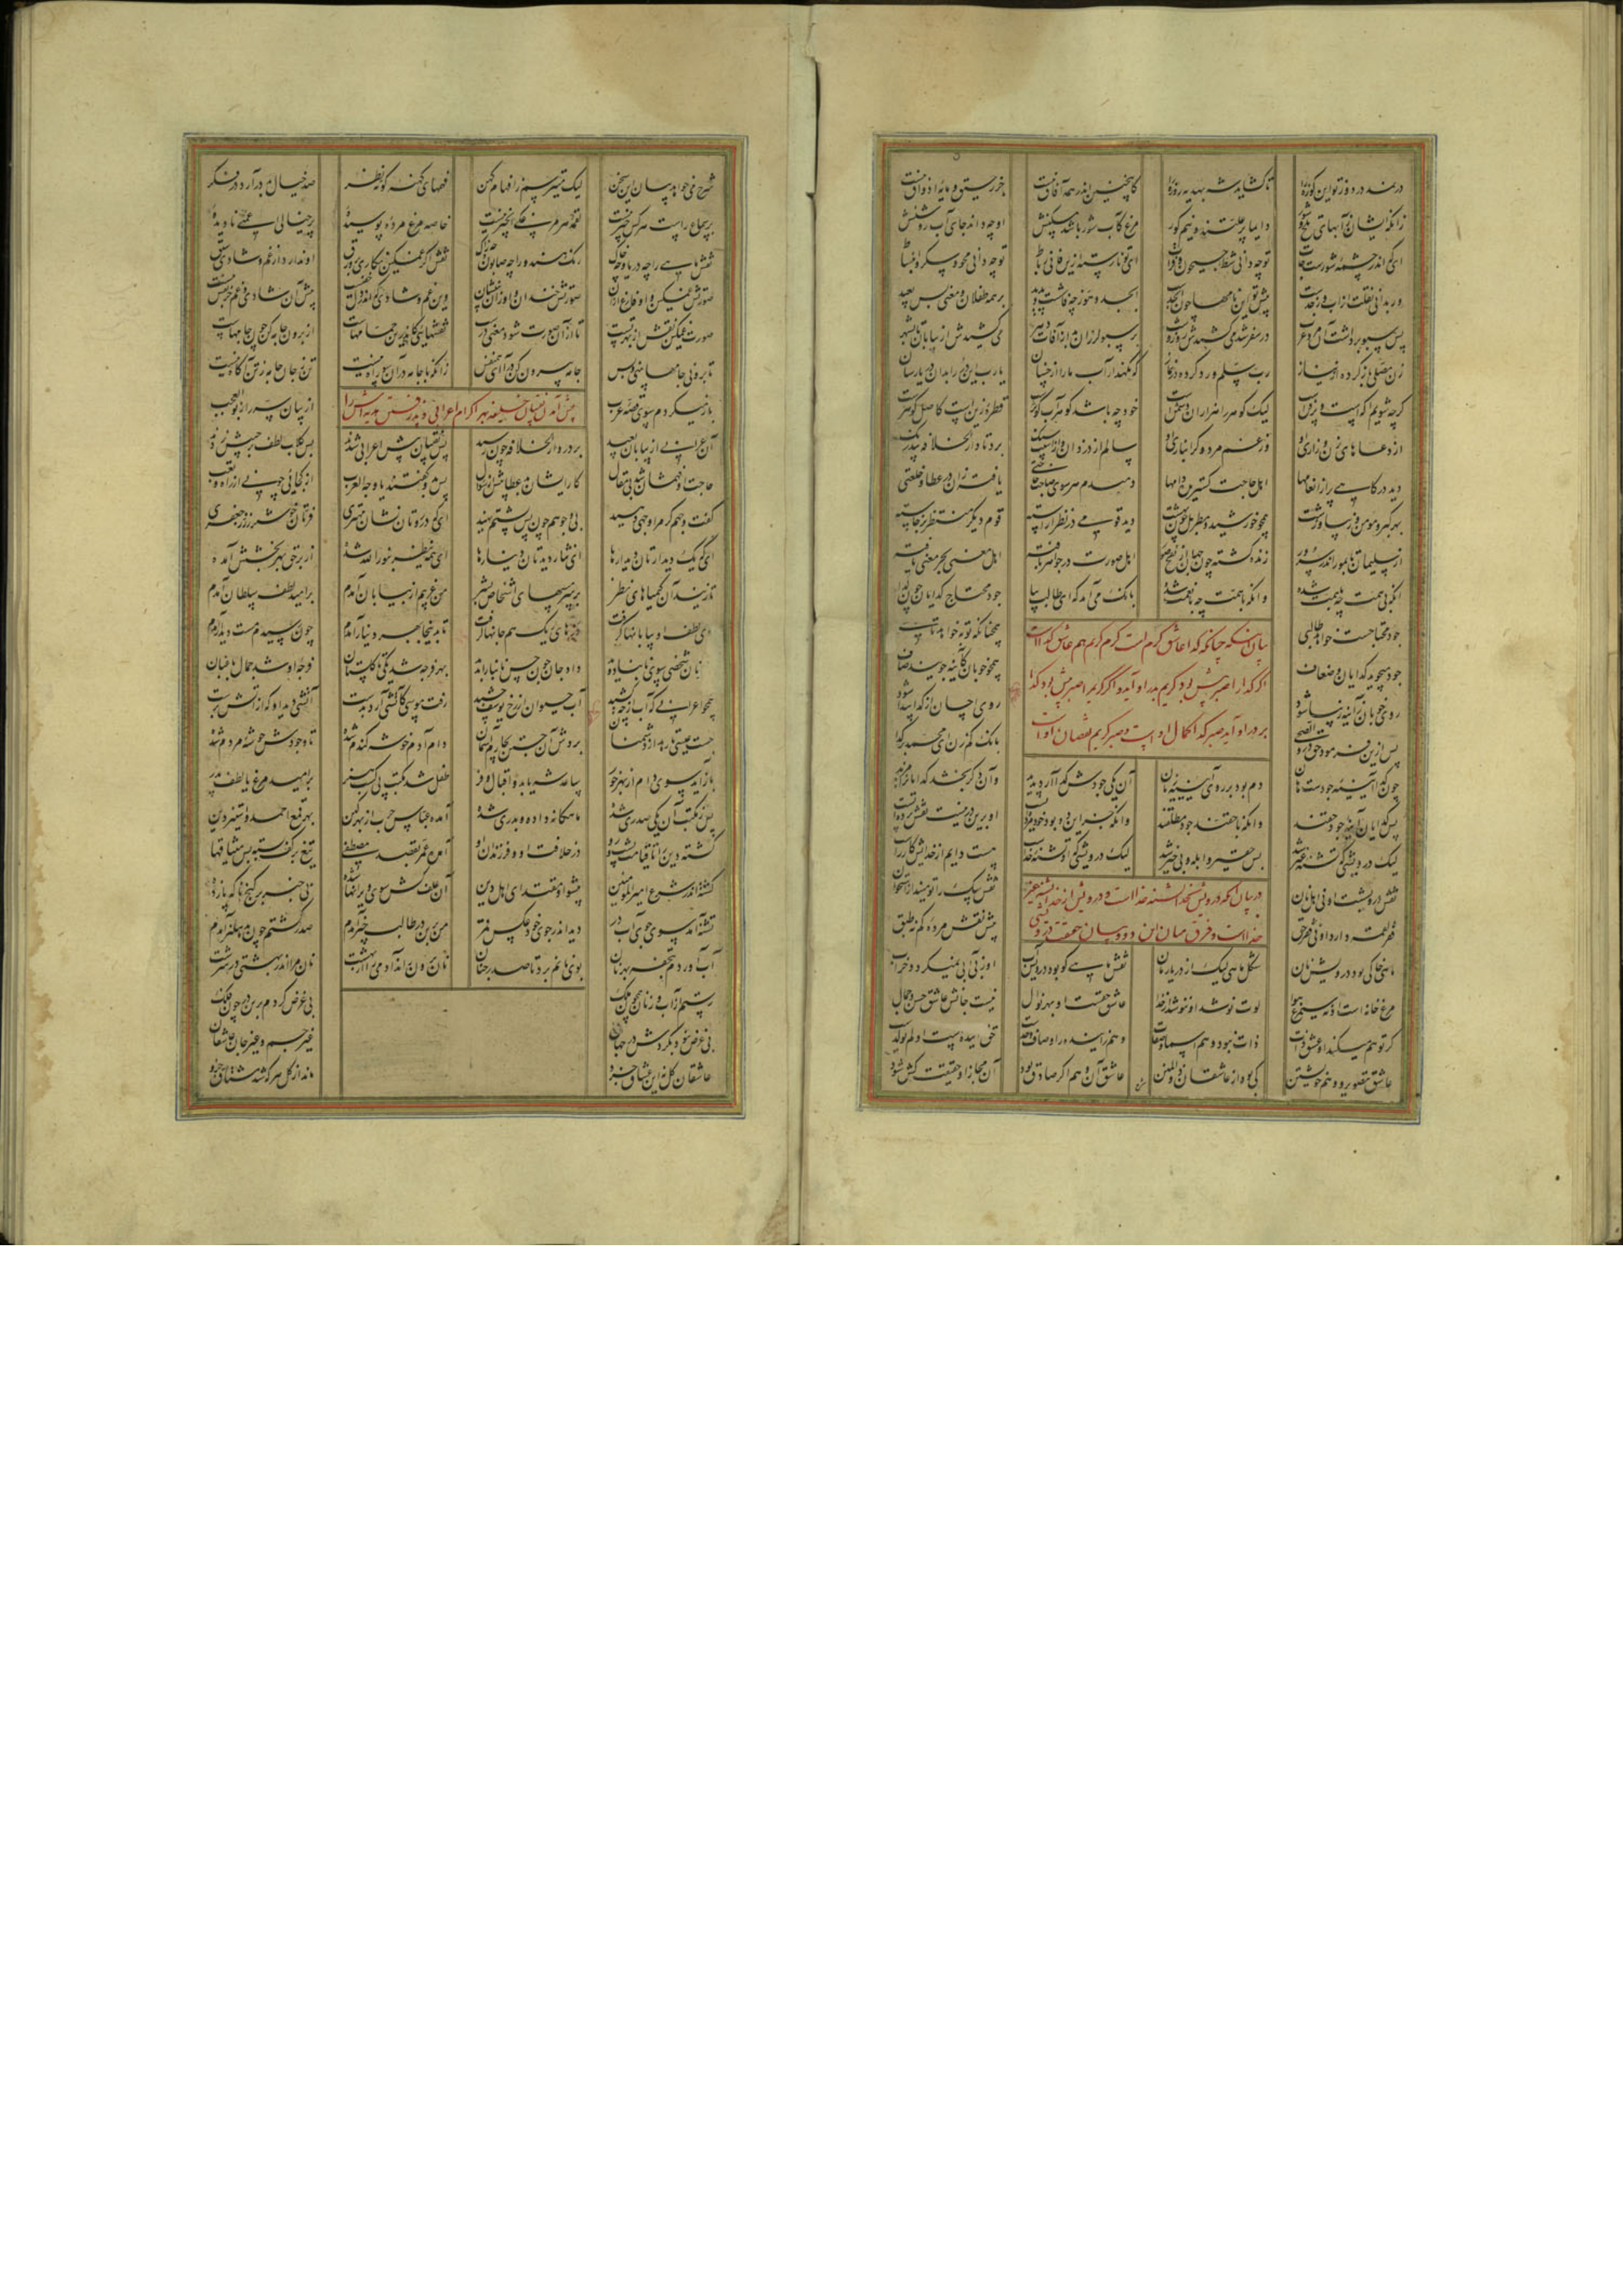 در نمد در دوز تو این کوزه را تا گشاید شه بهدیه روزه را کاینچنین اندر همه آفاق نیست جز رحیق و مایهٔ اذواق نیست
زانکه ایشان ز آبهای تلخ و شور دایما پر علتند و نیم کور مرغ کاب شور باشد مسکنش او چه داند جای آب روشنش
ای که اندر چشمهٔ شورست جات تو چه دانی شط و جیحون و فرات ای تو نارسته ازین فانی رباط تو چه دانی محو و سکر و انبساط
ور بدانی نقلت از اب و جدست پیش تو این نامها چون ابجدست ابجد و هوز چه فاشست و پدید بر همه طفلان و معنی بس بعید
پس سبو برداشت آن مرد عرب در سفر شد می کشیدش روز و شب بر سبو لرزان بد از آفات دهر می کشیدش از بیابان تا بشهر
زن مصلی باز کرده از نیاز رب سلم ورد کرده در نماز که نگهدار آب ما را از خسان یا رب این گوهر بدان دریا رسان
گرچه شویم آگه است و پر فن است لیک گوهر را هزاران دشمنست خود چه باشد گوهر آب کوثرست قطرهٔ زینست کاصل گوهرست
از دعاهای زن و زاری او وز غم مرد و گرانباری او سالم از دزدان و از آسیب سنگ برد تا دار الخلافه بی درنگ
دید درگاهی پر از انعامها اهل حاجت گستریده دامها دمبدم هر سوی صاحب حاجتی یافته زان در عطا و خلعتی
بهر گبر و مؤمن و زیبا و زشت همچو خورشید و مطر بل چون بهشت دید قومی در نظر آراسته قوم دیگر منتظر برخاسته
از سلیمان تا بمور زنده گشته چون جهان از نفخ صور اهل صورت در جواهر بافته اهل معنی بحر معنی یافته
آنکه بی همت چه با همت شده وانکه با همت چه با نعمت شده بانگ می آمد که ای طالب بیا جود محتاج گدایان چون گدا
بیان آنکه چنانکه گدا عاشق کرم است کرم کریم هم عاشق گداست
اگر گدا را صبر بیش بود کریم بر در او آید و اگر کریم را صبر بیش بود گدا
بر در او آید صبر گدا کمال اوست و صبر کریم نقصان اوست
جود محتاجست خواهد طالبی همچنانکه توبه خواهد تایبی
جود میجوید گدایان و ضعاف همچو خوبان کاینه جویند صاف
روی خوبان ز آینه زیبا شود روی احسان از گدا پیدا شود
پس ازین فرمود حق در والضحی بانگ کم زن ای محمد بر گدا
چون گدا آیینه جودست هان دم بود بر روی آیینه زیان آن یکی جودش گدا آرد پدید وان دگر بخشد گدایان را مزید
پس گدایان آینه جود حقند وانکه با حقند جود مطلقند وانکه جز این دو بود خود مرده ایست او برین در نیست نقش پرده ایست
لیک درویشی که تشنه غیر شد بس حقیر و ابله و بی خیر شد لیک درویشی که او تشنه خداست هست دایم از خدایش کار راست
در بیان آنکه درویش بخدا تشنه خداست و درویش از خدا تشنه غیر
خداست و فرق میان این دو
نقش درویشست او نی اهل نان نقش سگ را تو مینداز استخوان
فقر لقمه دارد او نی فقر حق پیش نقش مردهٔ کم نه طبق
ماهی خاکی بود درویش نان شکل ماهی لیک از دریا رمان نقش ماهی کو بود درویش آب او ز بی آبی نمیگردد خراب
مرغ خانه است او نه سیمرغ هوا لوت نوشد او ننوشد از خدا عاشق حقست او بهر نوال نیست جانش عاشق حسن و جمال
گر توهم میکند او عشق ذات ذات نبود وهم اسما و صفات وهم زاییده ز اوصاف و حدست حق نزاییدست او لم یولدست
عاشق تصویر و وهم خویشتن کی بود از عاشقان ذوالمنن عاشق آن وهم اگر صادق بود آن مجاز او حقیقت کش شود
شرح می خواهد بیان این سخن لیک میترسم ز افهام کهن فهمهای کهنه کوته نظر صد خیال بد در آرد در فکر
بر سماع راست هر کس چیر نیست لقمه هر مرغکی انجیر نیست خاصه مرغ مرده پوسیدهٔ پر خیالی اعمیی نادیدهٔ
نقش ماهی را چه دریا و چه خاک رنگ هندو را چه صابون و چه زاک نقش اگر غمگین نگاری بر ورق او ندارد از غم و شادی سبق
صورتش غمگین و او فارغ از آن صورتش خندان و او زان بی نشان وین غم و شادی که اندر دل خفیست پیش آن شادی و غم جز نقش نیست
صورت غمگین نقش از بهر تست تا از آن صورت شود معنی درست نقشهایی کاندرین حمامهاست از برون جامه کن چون جامهاست
تا برونی جامها بینی و بس جامه بیرون کن درآ ای همنفس زانکه با جامه در آن سو راه نیست تن ز جان جامه ز تن آگاه نیست
پیش آمدن نقیبان خلیفه بهر اکرام اعرابی و پذیرفتن هدیه اش را
باز میگردم سوی قصه عرب از بیان سر راز بوالعجب
آن عرابی از بیابان بعید بر در دار الخلافه چون رسید پس نقیبان پیش اعرابی شدند بس گلاب لطف بر جیبش زدند
حاجت او فهمشان شد بی مقال کار ایشان بد عطا پیش از سؤال پس بدو گفتند یا وجه العرب از کجایی چونی از راه و تعب
گفت وجهم گر مرا وجهی دهید بی وجوهم چون پس پشتم نهید ای که در روتان نشان مهتری فرتان خوشتر ز زر جعفری
ای که یک دیدارتان دیدارها ای نثار دیدتان دینارها ای همه ینظر بنور الله شده از بر حق بهر بخشش آمده
تا زنید آن کیمیاهای نظر بر سر مسهای اشخاص بشر من غریبم از بیابان آمدم بر امید لطف سلطان آمدم
بوی لطف او بیابانها گرفت ذره های ریگ هم جانها گرفت تا بدینجا بهر دینار آمدم چون رسیدم مست دیدار آمدم
بهر نان شخصی سوی نانبا دوید داد جان چون حسن نانبا را بدید بهر فرجه شد یکی تا گلستان فرجه او شد جمال باغبان
همچو اعرابی که آب از چه کشید آب حیوان از رخ یوسف چشید رفت موسی کاتشی آرد بدست آتشی دید او که از آتش برست
جست عیسی تا رهد از دشمنان بردش آن جستن بچارم آسمان دام آدم خوشه گندم شد تا وجودش خوشه مردم شد
باز آید سوی دام از بهر خور ساعد شه یابد و اقبال و فر طفل شد مکتب پی کسب هنر بر امید مرغ با لطف پدر
پس ز مکتب آن یکی صدری شده ماهگانه داده و بدری شده آمده عباس حرب از بهر کین بهر قمع احمد و ستیز دین
گشته دین را تا قیامت پشت و رو در خلافت او و فرزندان او آمد عمر بقصد مصطفی تیغ در کف بسته بس میثاقها
گشته اندر شرع امیر المؤمنین پیشوا و مقتدای اهل دین
تشنه آمد سوی جوی آب در دید اندر جوی خود عکس قمر من برین در طالب چیز آمدم صدر گشتم چون بدهلیز آمدم
آب آوردم بتحفه بهر نان بوی نانم برد تا صدر جنان نان برون راند آدمی را از بهشت نان مرا اندر بهشتی در سرشت
رستم از آب و ز نان همچون ملک بی غرض گردم برین در چون فلک
بی غرض نبود بگردش در جهان غیر جسم و غیر جان عاشقان
عاشقان کل نه این عشاق جزو ماند از کل هر که شد مشتاق جزو